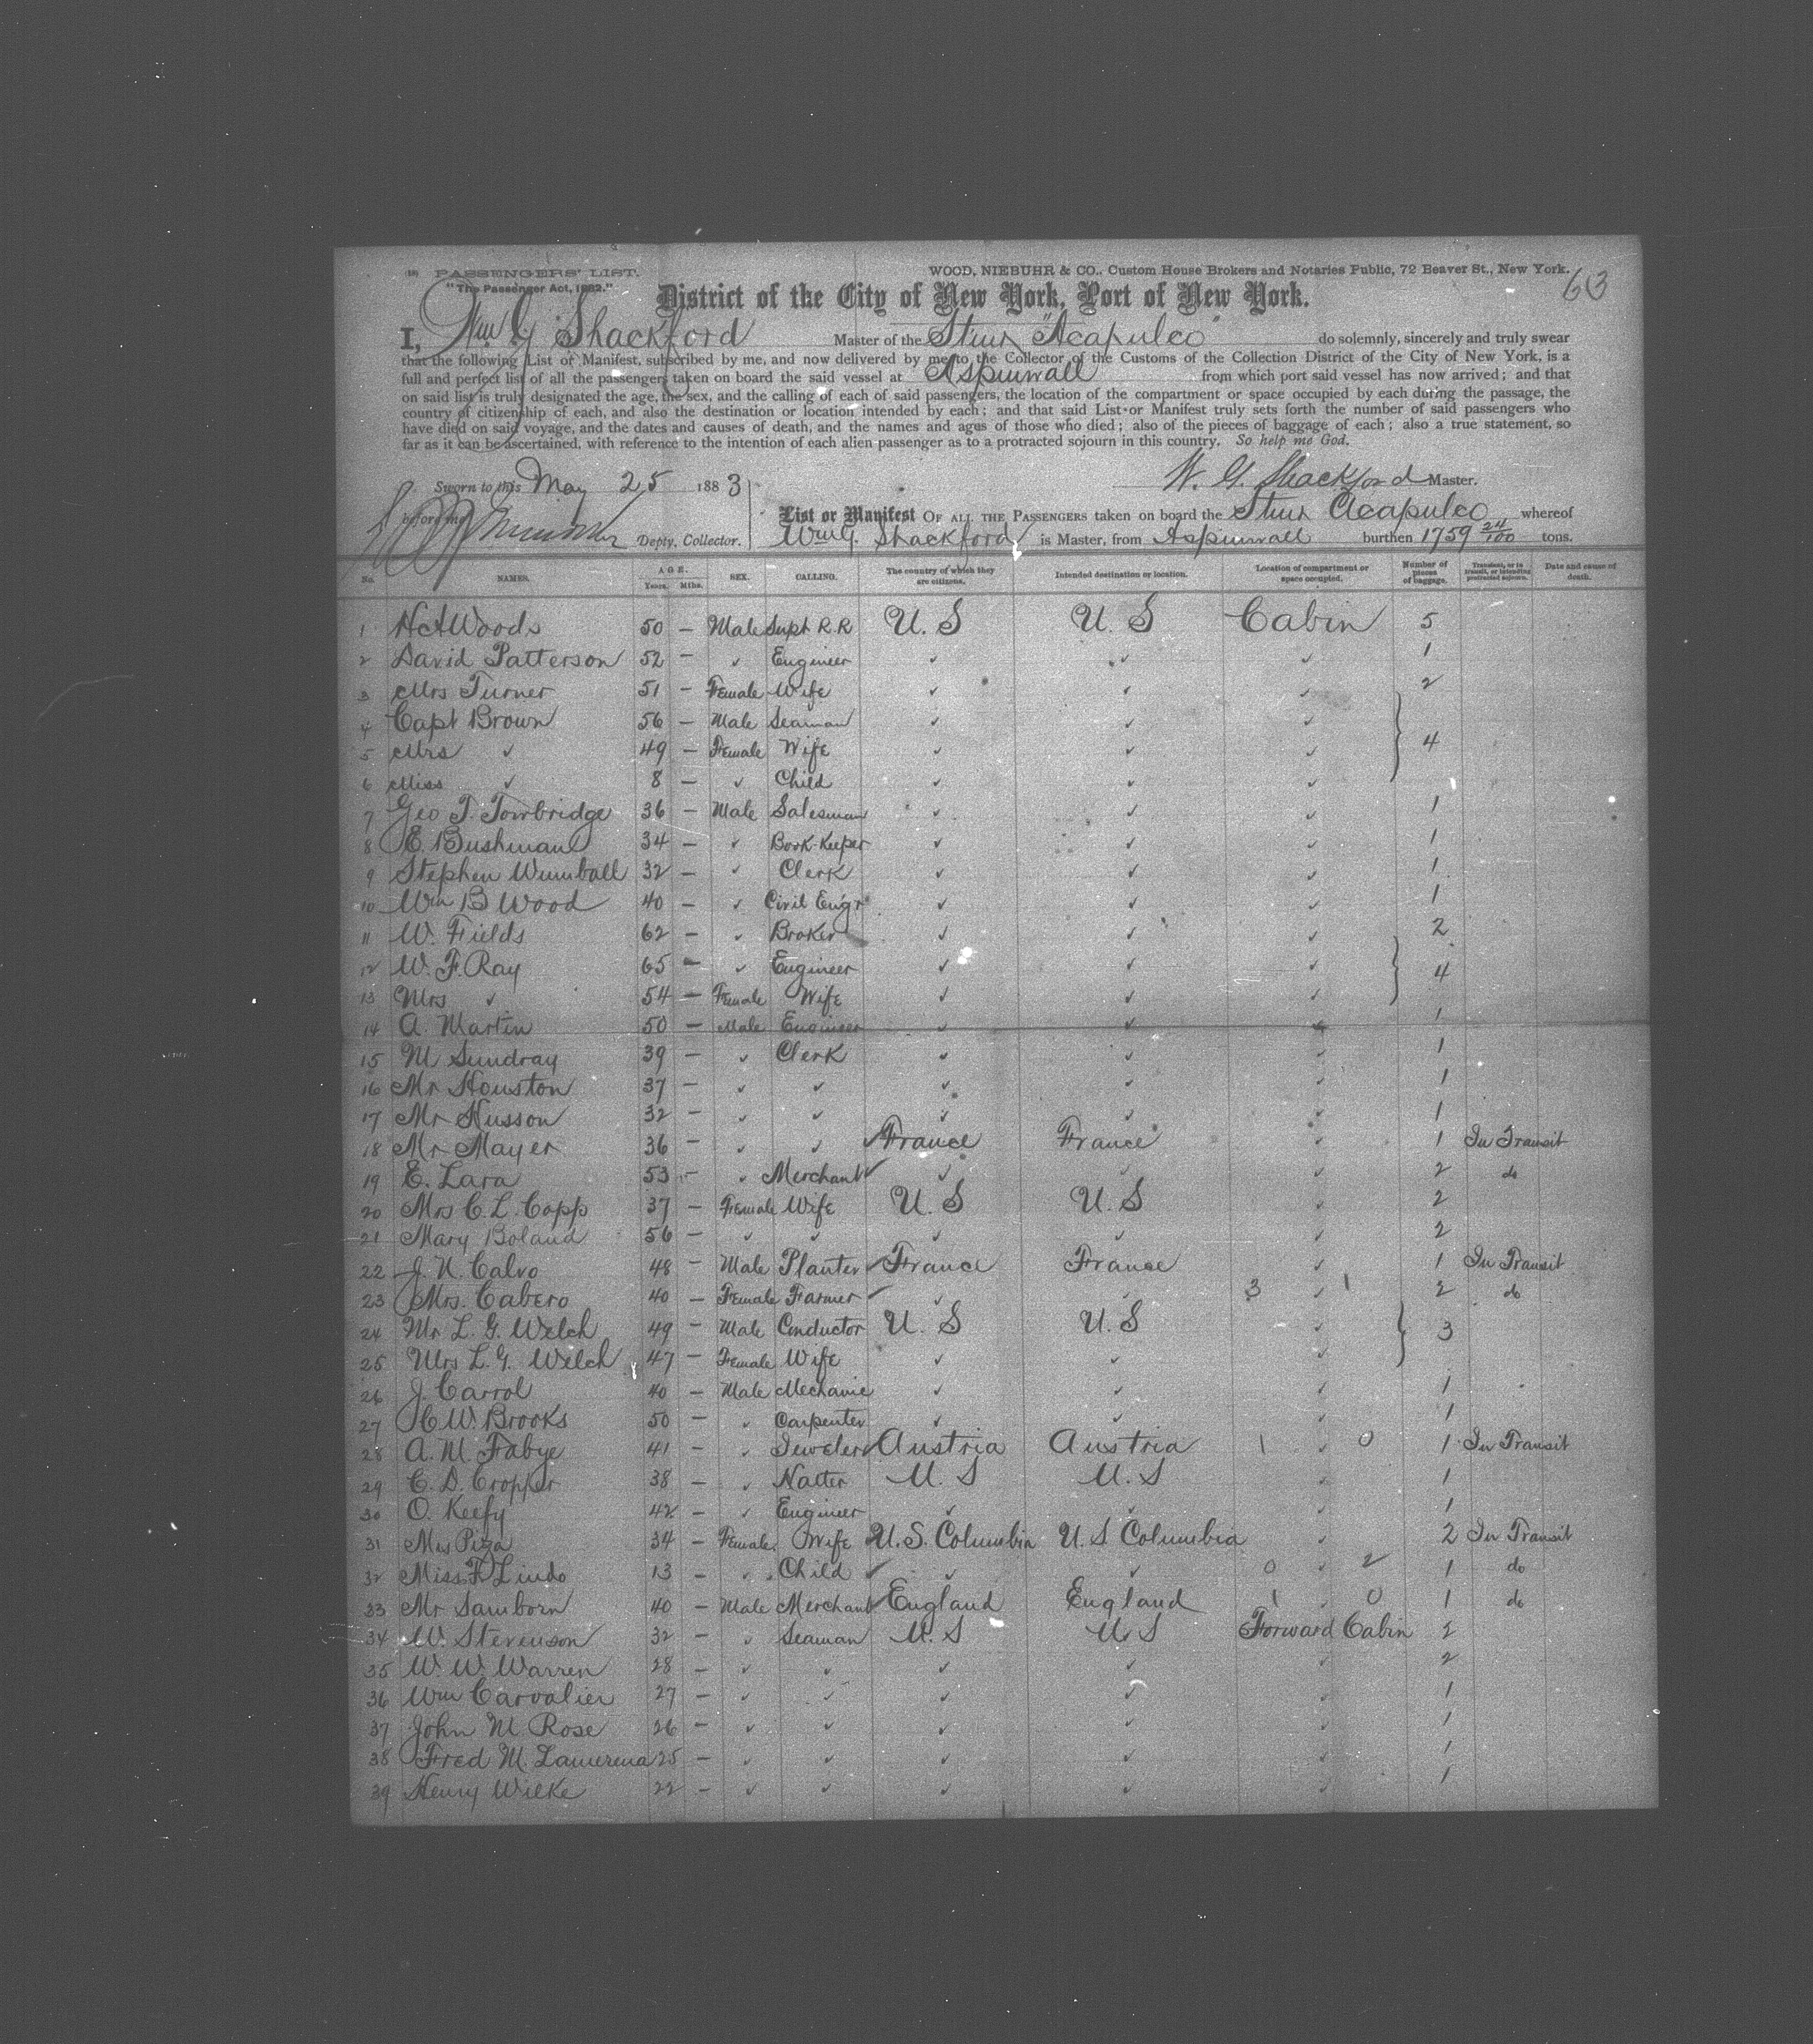 (18) PASSENGERS' LIST. WOOD, NIEBUHR & CO., Custom House Brokers and Notaries Public, 72 Beaver St., New York.
"The Passenger Act, 1882." 63
District of the City of New York, Port of New York.
I, Wm G Shackford Master of the Stmr "Acapulco" do solemnly, sincerely and truly swear
that the following List or Manifest, subscribed by me, and now delivered by me to the Collector of the Customs of the Collection District of the City of New York, is a
full and perfect list of all the passengers taken on board the said vessel at Aspinwall from which port said vessel has now arrived; and that
on said list is truly designated the age, the sex, and the calling of each of said passengers, the location of the compartment or space occupied by each during the passage, the
country of citizenship of each, and also the destination or location intended by each; and that said List or Manifest truly sets forth the number of said passengers who
have died on said voyage, and the dates and causes of death, and the names and ages of those who died; also of the pieces of baggage of each; also a true statement, so
far as it can be ascertained, with reference to the intention of each alien passenger as to a protracted sojourn in this country. So help me God.
Sworn to this May 25 1883 W. G. Shackford Master.
before me Depty. Collector.
List or Manifest OF ALL THE PASSENGERS taken on board the Stmr Acapulco whereof
Wm G. Shackford is Master, from Aspinwall burthen 1759 24/100 tons.
No. NAMES. AGE. Years. Mths. SEX. CALLING. The country of which they are citizens. Intended destination or location. Location of compartment or space occupied. Number of pieces of baggage. Transient, or in transit, or intending protracted sojourn. Date and cause of death.
1 H A Woods 50 – Male Supt R.R U. S U. S Cabin 5
2 David Patterson 52 – ✓ Engineer ✓ ✓ ✓ 1
3 Mrs Turner 51 – Female Wife ✓ ✓ ✓ 2
4 Capt Brown 56 – Male Seaman ✓ ✓ ✓
5 Mrs ✓ 49 – Female Wife ✓ ✓ ✓ 4
6 Miss ✓ 8 – ✓ Child ✓ ✓ ✓
7 Geo T. Towbridge 36 – Male Salesman ✓ ✓ ✓ 1
8 E. Bushman 34 – ✓ Book-Keeper ✓ ✓ ✓ 1
9 Stephen Wumball 32 – ✓ Clerk ✓ ✓ ✓ 1
10 Wm B Wood 40 – ✓ Civil Engr ✓ ✓ ✓ 1
11 W. Fields 62 – ✓ Broker ✓ ✓ ✓ 2
12 W. F. Ray 65 – ✓ Engineer ✓ ✓ ✓ 4
13 Mrs ✓ 54 – Female Wife ✓ ✓ ✓
14 A. Martin 50 – Male Engineer ✓ ✓ ✓ 1
15 M Sundray 39 – ✓ Clerk ✓ ✓ ✓ 1
16 Mr Houston 37 – ✓ ✓ ✓ ✓ ✓ 1
17 Mr Husson 32 – ✓ ✓ ✓ ✓ ✓ 1
18 Mr Mayer 36 – ✓ ✓ France France ✓ 1 In Transit
19 E. Lara 53 – ✓ Merchant ✓ ✓ ✓ 2 do
20 Mrs C. L. Copp 37 – Female Wife U. S U. S ✓ 2
21 Mary Boland 56 – ✓ ✓ ✓ ✓ ✓ 2
22 J. N. Calvo 48 – Male Planter France France ✓ 1 In Transit
23 Mrs. Cabero 40 – Female Farmer ✓ ✓ 3 ✓ 1 2 do
24 Mr L. G. Welch 49 – Male Conductor U. S U. S ✓ 3
25 Mrs L. G. Welch 47 – Female Wife ✓ ✓ ✓
26 J. Carrol 40 – Male Mechanic ✓ ✓ ✓ 1
27 H. W. Brooks 50 – ✓ Carpenter ✓ ✓ ✓ 1
28 A. M. Fabye 41 – ✓ Jeweler Austria Austria 1 ✓ 0 1 In Transit
29 C. D. Cropper 38 – ✓ Hatter U. S U. S ✓ 1
30 O. Keefy 42 – ✓ Engineer ✓ ✓ ✓ 1
31 Mrs Piza 34 – Female Wife U. S. Columbia U. S Columbia ✓ 2 In Transit
32 Miss F. Lindo 13 – ✓ Child ✓ ✓ 0 ✓ 2 1 do
33 Mr Samborn 40 – Male Merchant England England 1 ✓ 0 1 do
34 W. Stevenson 32 – ✓ Seaman U. S U. S Forward Cabin 2
35 W. W. Warren 28 – ✓ ✓ ✓ ✓ ✓ 2
36 Wm Carvalier 27 – ✓ ✓ ✓ ✓ ✓ 1
37 John M Rose 26 – ✓ ✓ ✓ ✓ ✓ 1
38 Fred M. Lamerena 25 – ✓ ✓ ✓ ✓ ✓ 1
39 Henry Wilke 22 – ✓ ✓ ✓ ✓ ✓ 1